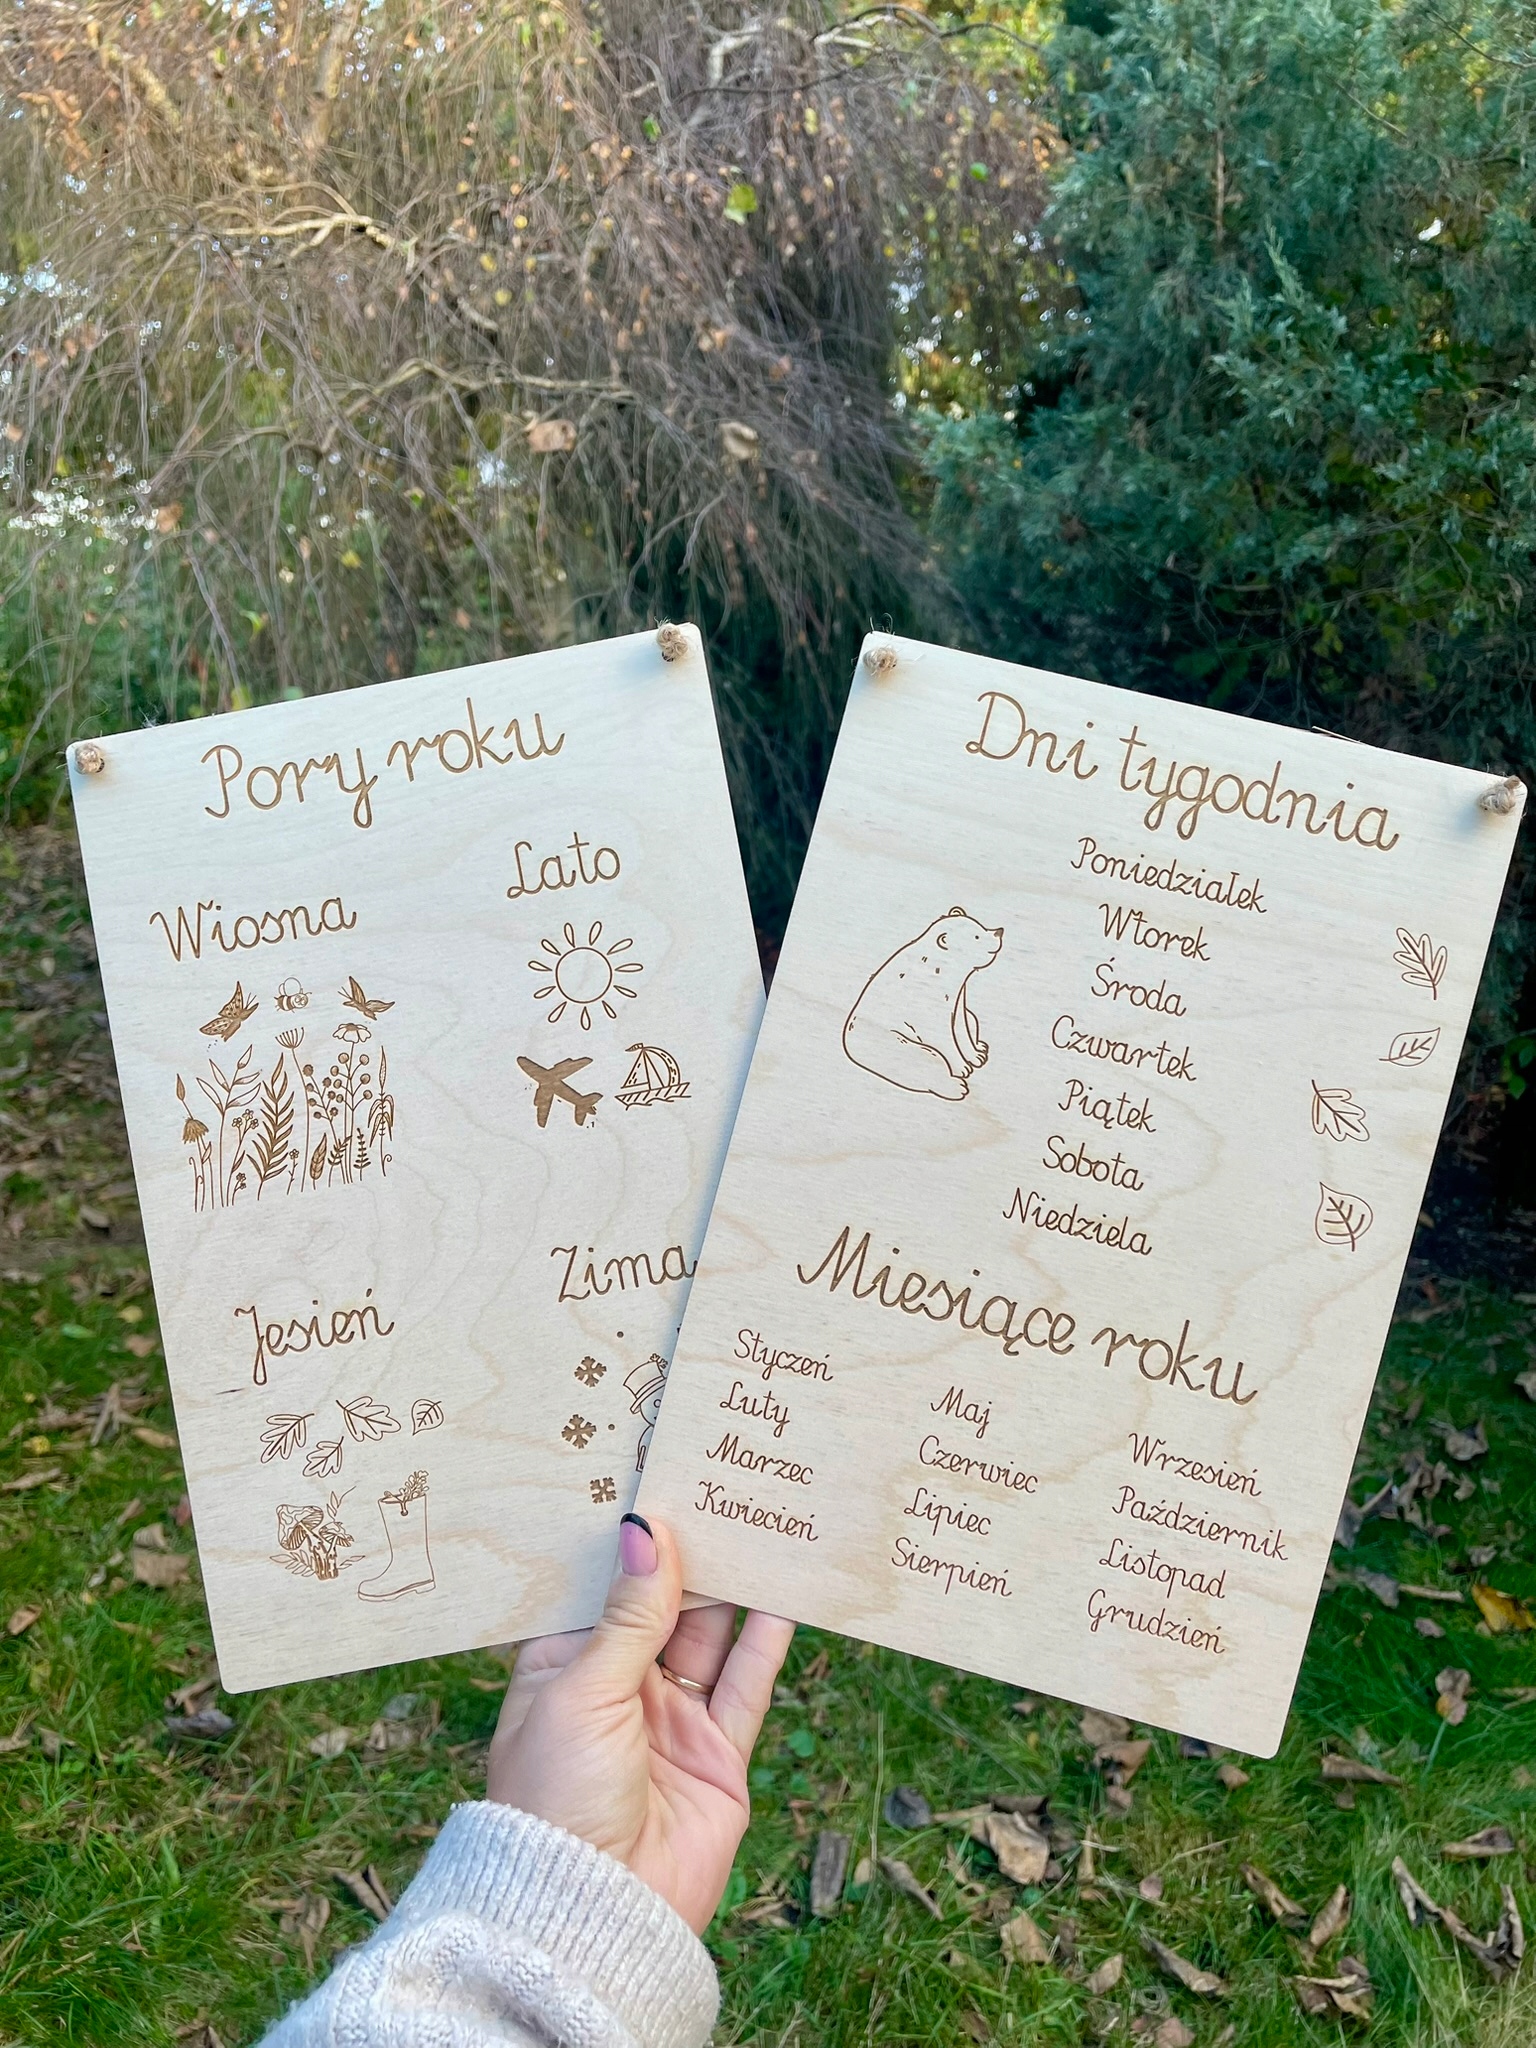 Pory roku
Wiosna
Lato
Jesień
Zima
Dni tygodnia
Poniedziałek
Wtorek
Środa
Czwartek
Piątek
Sobota
Niedziela
Miesiące roku
Styczeń
Luty
Marzec
Kwiecień
Maj
Czerwiec
Lipiec
Sierpień
Wrzesień
Październik
Listopad
Grudzień